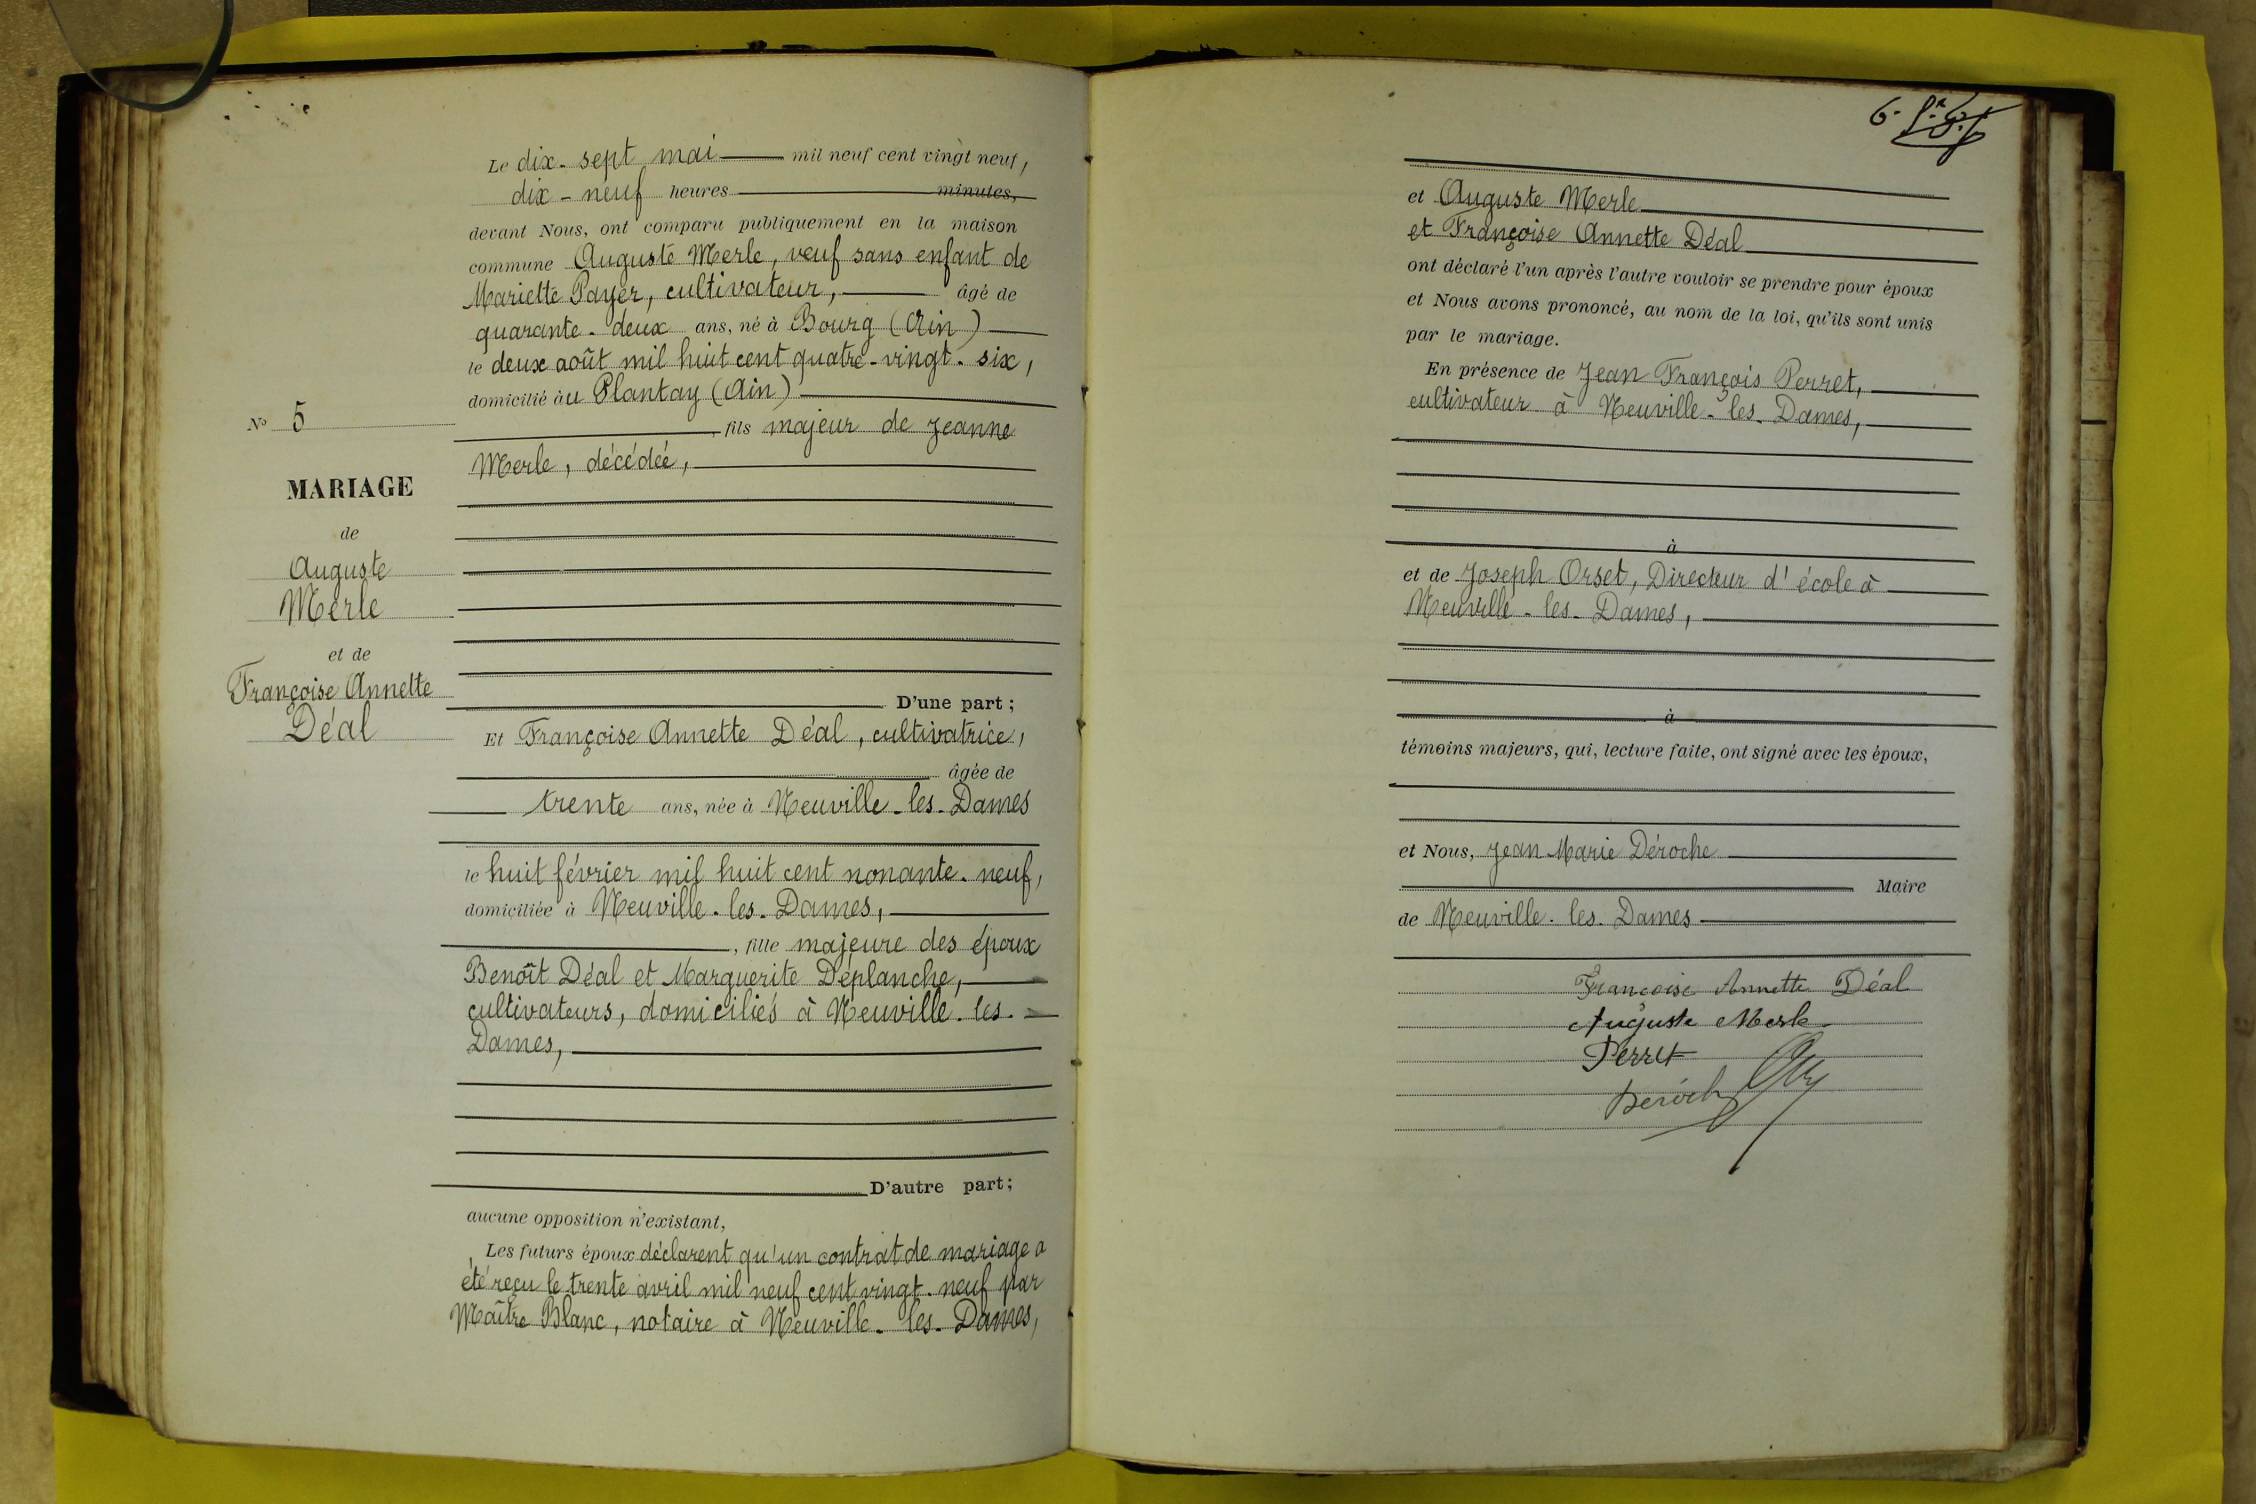 Le dix-sept mai mil neuf cent vingt neuf,
dix-neuf heures minutes,
devant Nous, ont comparu publiquement en la maison
commune Auguste Merle, veuf sans enfant de
Mariette Payer, cultivateur, âgé de
quarante-deux ans, né à Bourg (Ain)
le deux août mil huit cent quatre-vingt-six,
domicilié àu Plantay (Ain)
fils majeur de Jeanne
Merle, décédée,
D'une part;
Et Françoise Annette Déal, cultivatrice,
âgée de
trente ans, née à Neuville-les-Dames
le huit février mil huit cent nonante-neuf,
domiciliée à Neuville-les-Dames,
, fille majeure des époux
Benoît Déal et Marguerite Déplanche,
cultivateurs, domiciliés à Neuville-les-
Dames,
D'autre part;
aucune opposition n'existant,
Les futurs époux déclarent qu'un contrat de mariage a
été reçu le trente avril mil neuf cent vingt-neuf par
Maître Blanc, notaire à Neuville-les-Dames,
No 5
MARIAGE
de
Auguste
Merle
et de
Françoise Annette
Déal
6.
et Auguste Merle
et Françoise Annette Déal
ont déclaré l'un après l'autre vouloir se prendre pour époux
et Nous avons prononcé, au nom de la loi, qu'ils sont unis
par le mariage.
En présence de Jean François Perret,
cultivateur à Neuville-les-Dames,
à
et de Joseph Orset, Directeur d'école à
Neuville-les-Dames,
à
témoins majeurs, qui, lecture faite, ont signé avec les époux,
et Nous, Jean Marie Déroche
Maire
de Neuville-les-Dames
Françoise Annette Déal
Auguste Merle
Perret